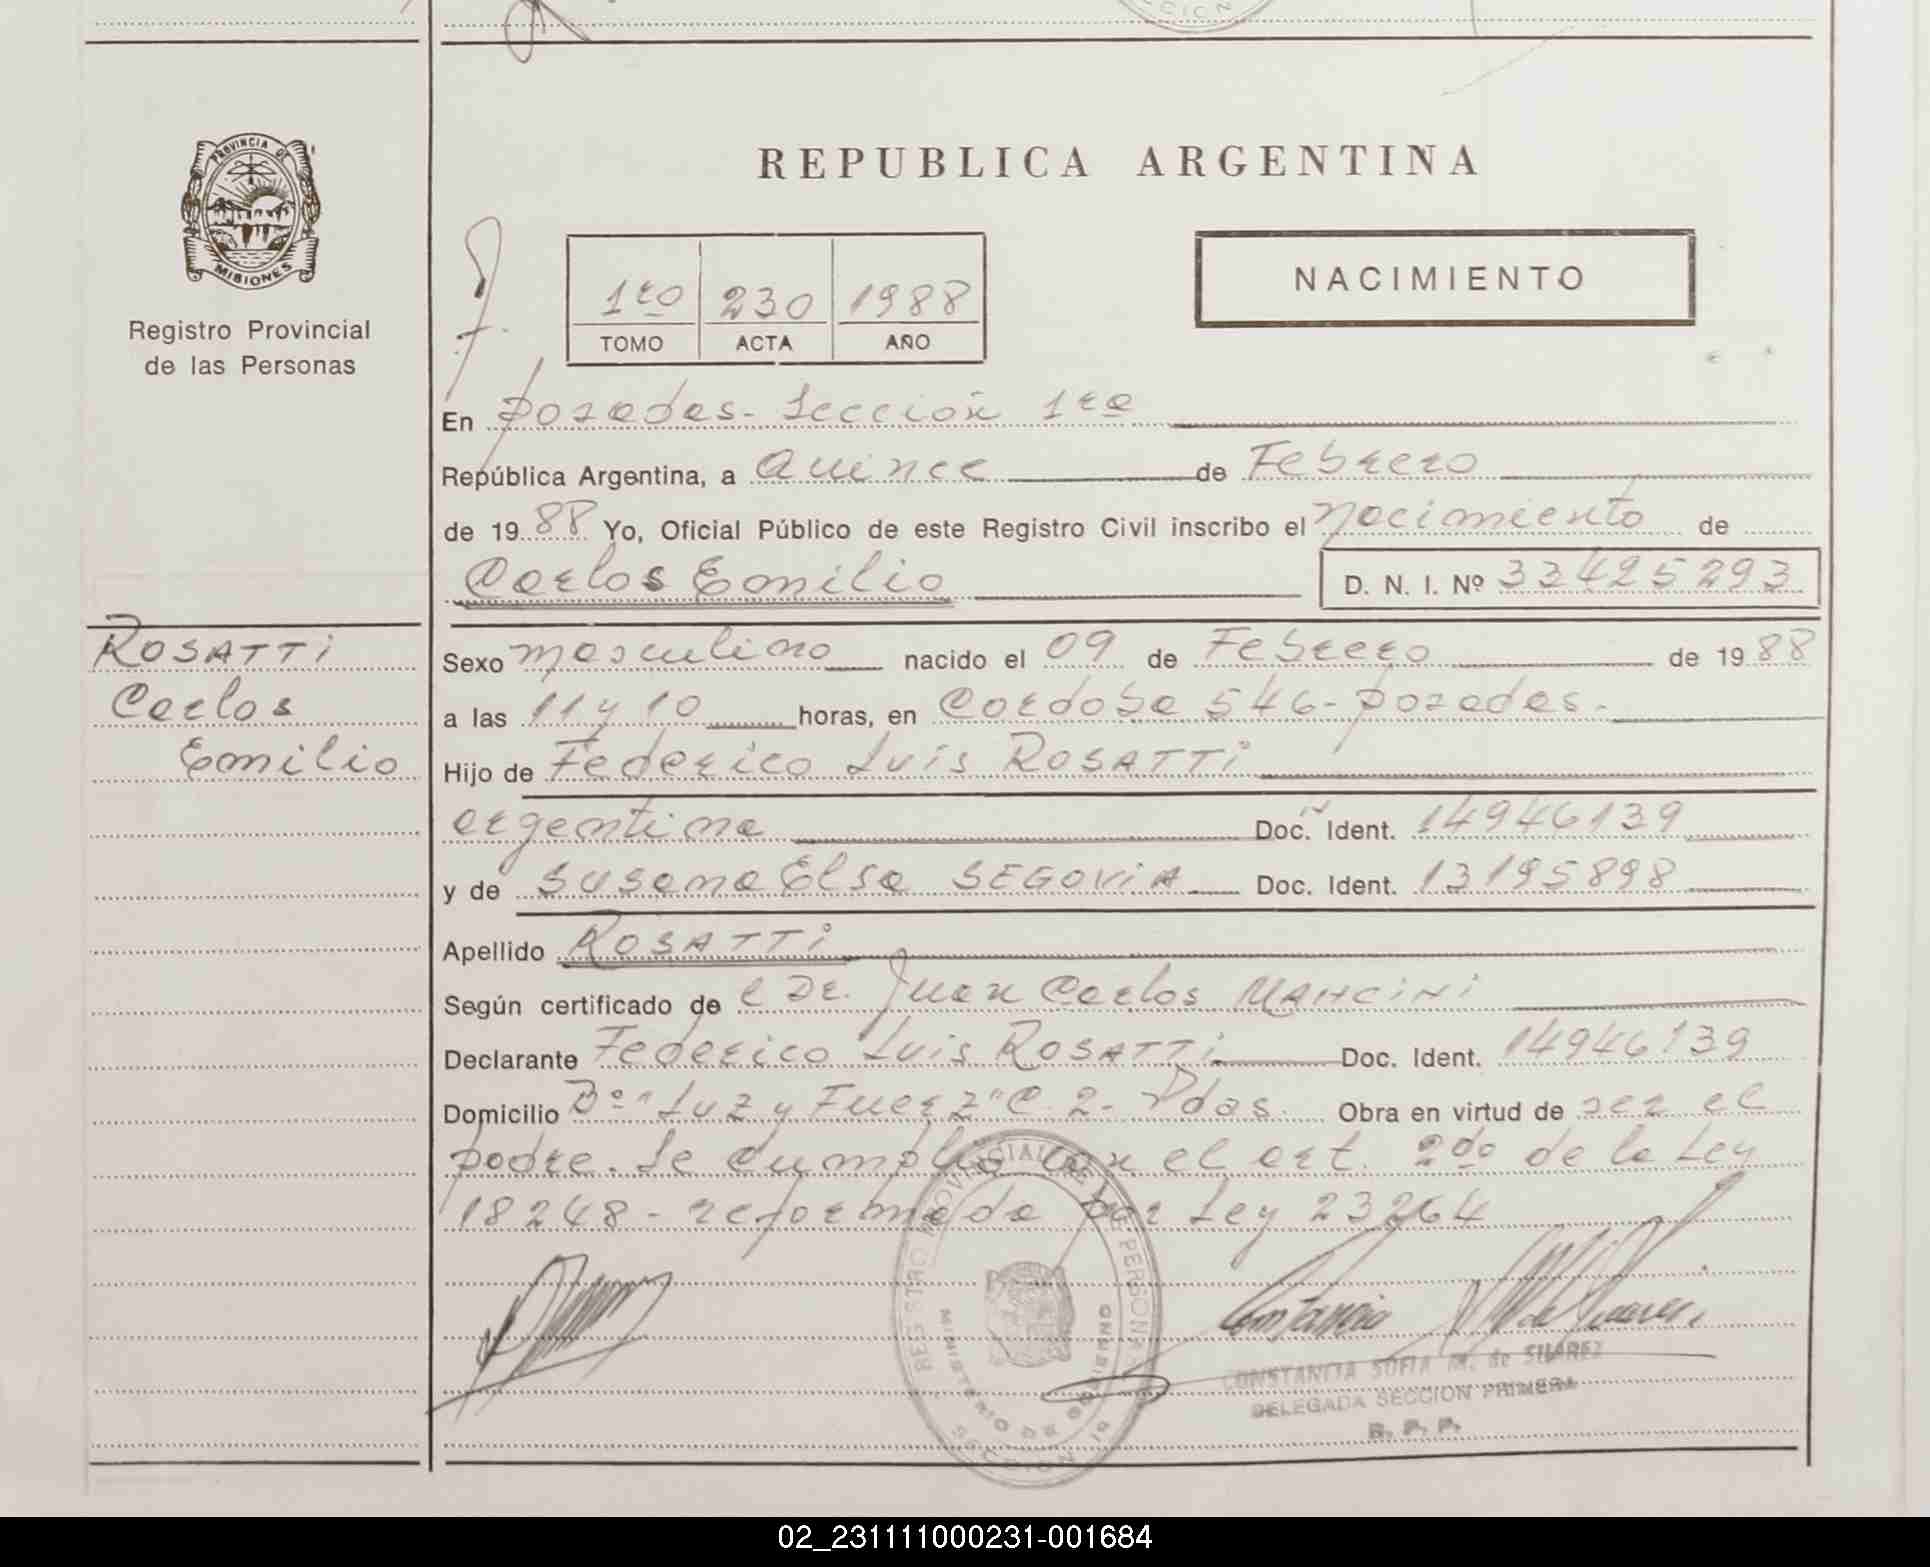 PROVINCIA DE
MISIONES
Registro Provincial
de las Personas
ROSATTi
Carlos
Emilio
REPUBLICA ARGENTINA
1ro 230 1988
TOMO ACTA AÑO
NACIMIENTO
En posadas - Sección 1ra
República Argentina, a Quince de Febrero
de 1988 Yo, Oficial Público de este Registro Civil inscribo el nacimiento de
Carlos Emilio D. N. I. Nº 33425293
Sexo masculino nacido el 09 de Febrero de 1988
a las 11 y 10 horas, en Cordoba 546 - posadas.
Hijo de Federico Luis ROSATTi
argentina Doc. Ident. 14946139
y de Susana Elsa SEGOViA Doc. Ident. 13195898
Apellido ROSATTi
Según certificado de l Dr. Juan Carlos MANCiNi
Declarante Federico Luis ROSATTi Doc. Ident. 14946139
Domicilio Bº "Luz y Fuerza" C. 2 - Pdas. Obra en virtud de ser el
padre. Se cumplió con el art. 2do de la Ley
18248 - reformada por Ley 23264
REGISTRO PROVINCIAL DE LAS PERSONAS
MINISTERIO DE GOBIERNO
SECCION 1ª
CONSTANCIA SOFIA M. de SUAREZ
DELEGADA SECCION PRIMERA
R. P. P.
02_231111000231-001684